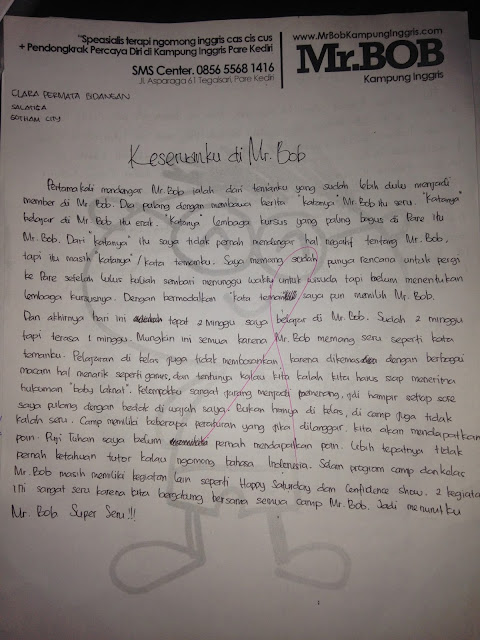 "Speasialis terapi ngomong inggris cas cis cus
+ Pendongkrak Percaya Diri di Kampung Inggris Pare Kediri
SMS Center. 0856 5568 1416
Jl. Asparaga 61 Tegalsari, Pare Kediri
www.MrBobKampungInggris.com
Mr.BOB
Kampung Inggris
CLARA PERMATA BIDANGAN
SALATIGA
GOTHAM CITY
Keseruanku di Mr. Bob
Pertama kali mendengar Mr. Bob ialah dari temanku yang sudah lebih dulu menjadi
member di Mr. Bob. Dia pulang dengan membawa berita "katanya" Mr. Bob itu seru. "katanya"
belajar di Mr. Bob itu enak. "katanya" lembaga kursus yang paling bagus di Pare itu
Mr. Bob. Dari "katanya" itu saya tidak pernah mendengar hal negatif tentang Mr. Bob,
tapi itu masih "katanya" / kata temanku. Saya memang sudah punya rencana untuk pergi
ke Pare setelah lulus kuliah sembari menunggu waktu untuk wisuda tapi belum menentukan
lembaga kursusnya. Dengan bermodalkan "kata temanku" saya pun memilih Mr. Bob.
Dan akhirnya hari ini tepat 2 minggu saya belajar di Mr. Bob. Sudah 2 minggu
tapi terasa 1 minggu. Mungkin ini semua karena Mr. Bob memang seru seperti kata
temanku. Pelajaran di kelas juga tidak membosankan karena dikemas dengan berbagai
macam hal menarik seperti games, dan tentunya kalau kita kalah kita harus siap menerima
hukuman "baby laknat". Kelompokku sangat jarang menjadi pemenang, jadi hampir setiap sore
saya pulang dengan bedak di wajah saya. Bukan hanya di kelas, di camp juga tidak
kalah seru. Camp memiliki beberapa peraturan yang jika dilanggar kita akan mendapatkan
poin. Puji Tuhan saya belum pernah mendapatkan poin. Lebih tepatnya tidak
pernah ketahuan tutor kalau ngomong bahasa Indonesia. Selain program camp dan kelas
Mr. Bob masih memiliki kegiatan lain seperti Happy Saturday dan Confidence show. 2 kegiata
ini sangat seru karena kita bergabung bersama semua camp Mr. Bob. Jadi menurutku
Mr. Bob Super Seru!!!
1